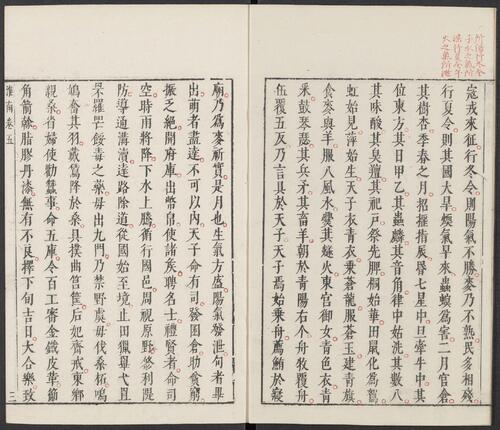 寇戎來征行冬令則陽氣不勝麥乃不熟民多相殘
行夏令則其國大旱煗氣早來蟲螟爲害二月官倉
其樹杏季春之月招搖指辰昬七星中旦牽牛中其
位東方其日甲乙其蟲鱗其音角律中姑洗其數八
其味酸其臭羶其祀戸祭先脾桐始華田鼠化爲鴽
虹始見萍始生天子衣青衣乗蒼龍服蒼玉建青旗
食麥與羊服八風水爨其燧火東宮御女青色衣青
采鼓琴瑟其兵矛其畜羊朝於青陽右个舟牧覆舟
伍覆五反乃言具於天子天子焉始乗舟薦鮪於寢
廟乃爲麥祈實是月也生氣方盛陽氣發泄句者畢
出萌者盡達不可以内天子命有司發囷倉助貧窮
振乏絶開府庫出幣帛使諸矦聘名士禮賢者命司
空時雨將降下水上騰循行國邑周視原野修利隄
防導通溝瀆達路除道從國始至境止田獵畢弋罝
罘羅罔餧毒之藥毋出九門乃禁野虞毋伐桑柘鳴
鳩奮其羽戴鵀降於桑具撲曲筥筐后妃齊戒東鄉
親桑省婦使勸蠶事命五庫令百工審金鐵皮革筋
角箭榦脂膠丹漆無有不良擇下旬吉日大合樂致
淮南卷五
三